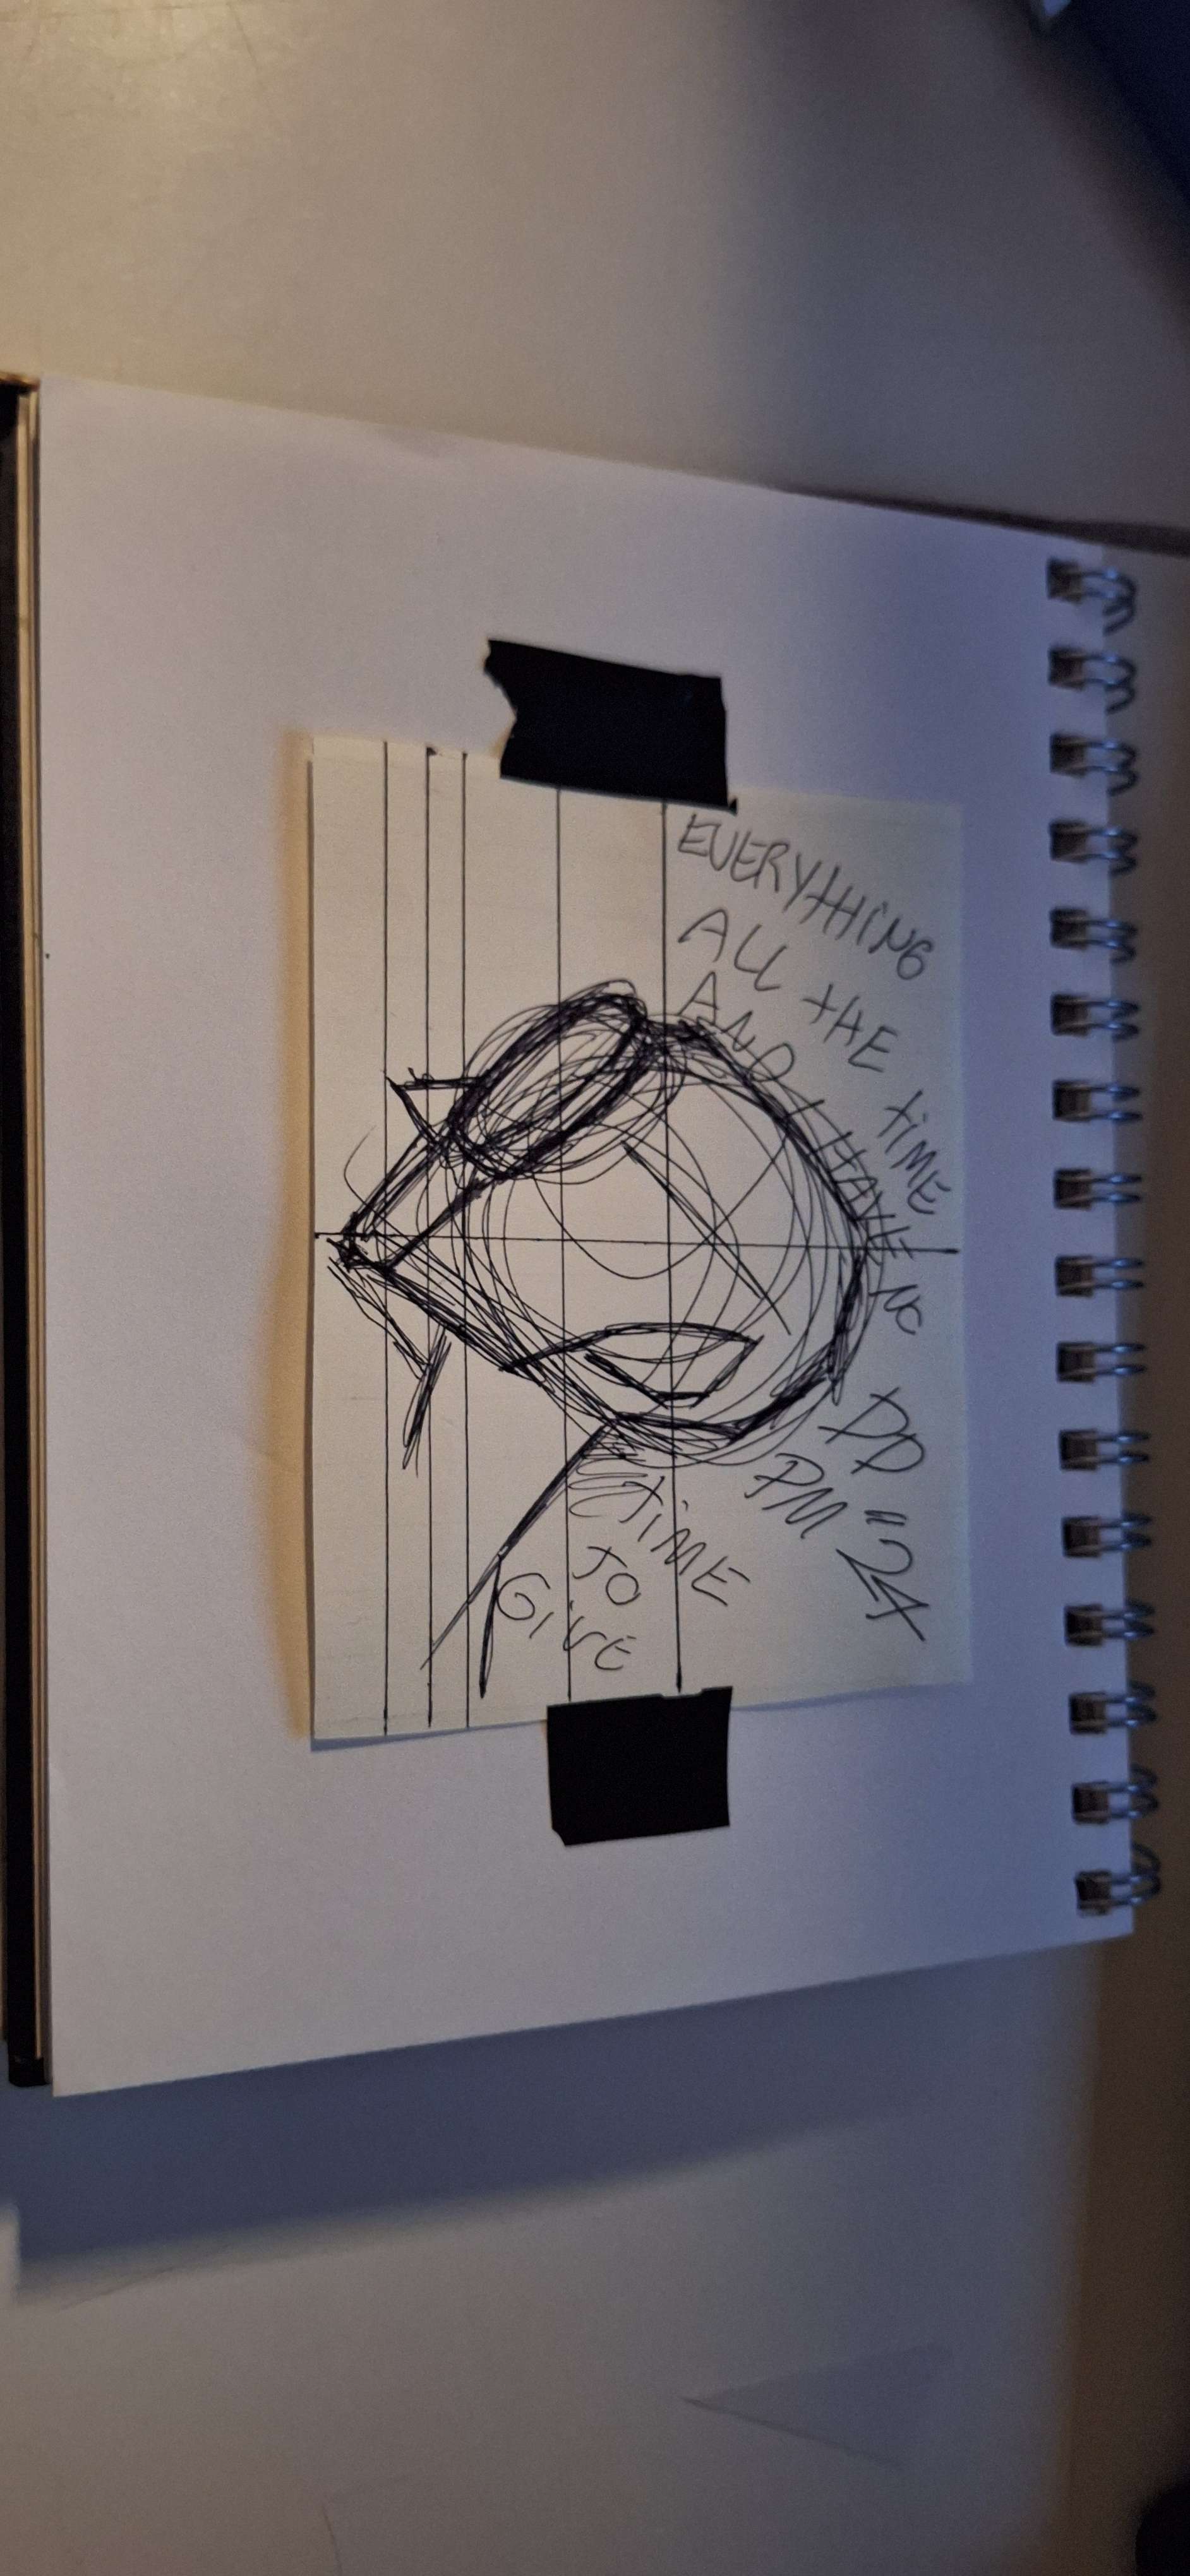 EVERYTHING
ALL THE TIME
AND I HAVE NO
TIME
TO
GIVE
DD
PM "24